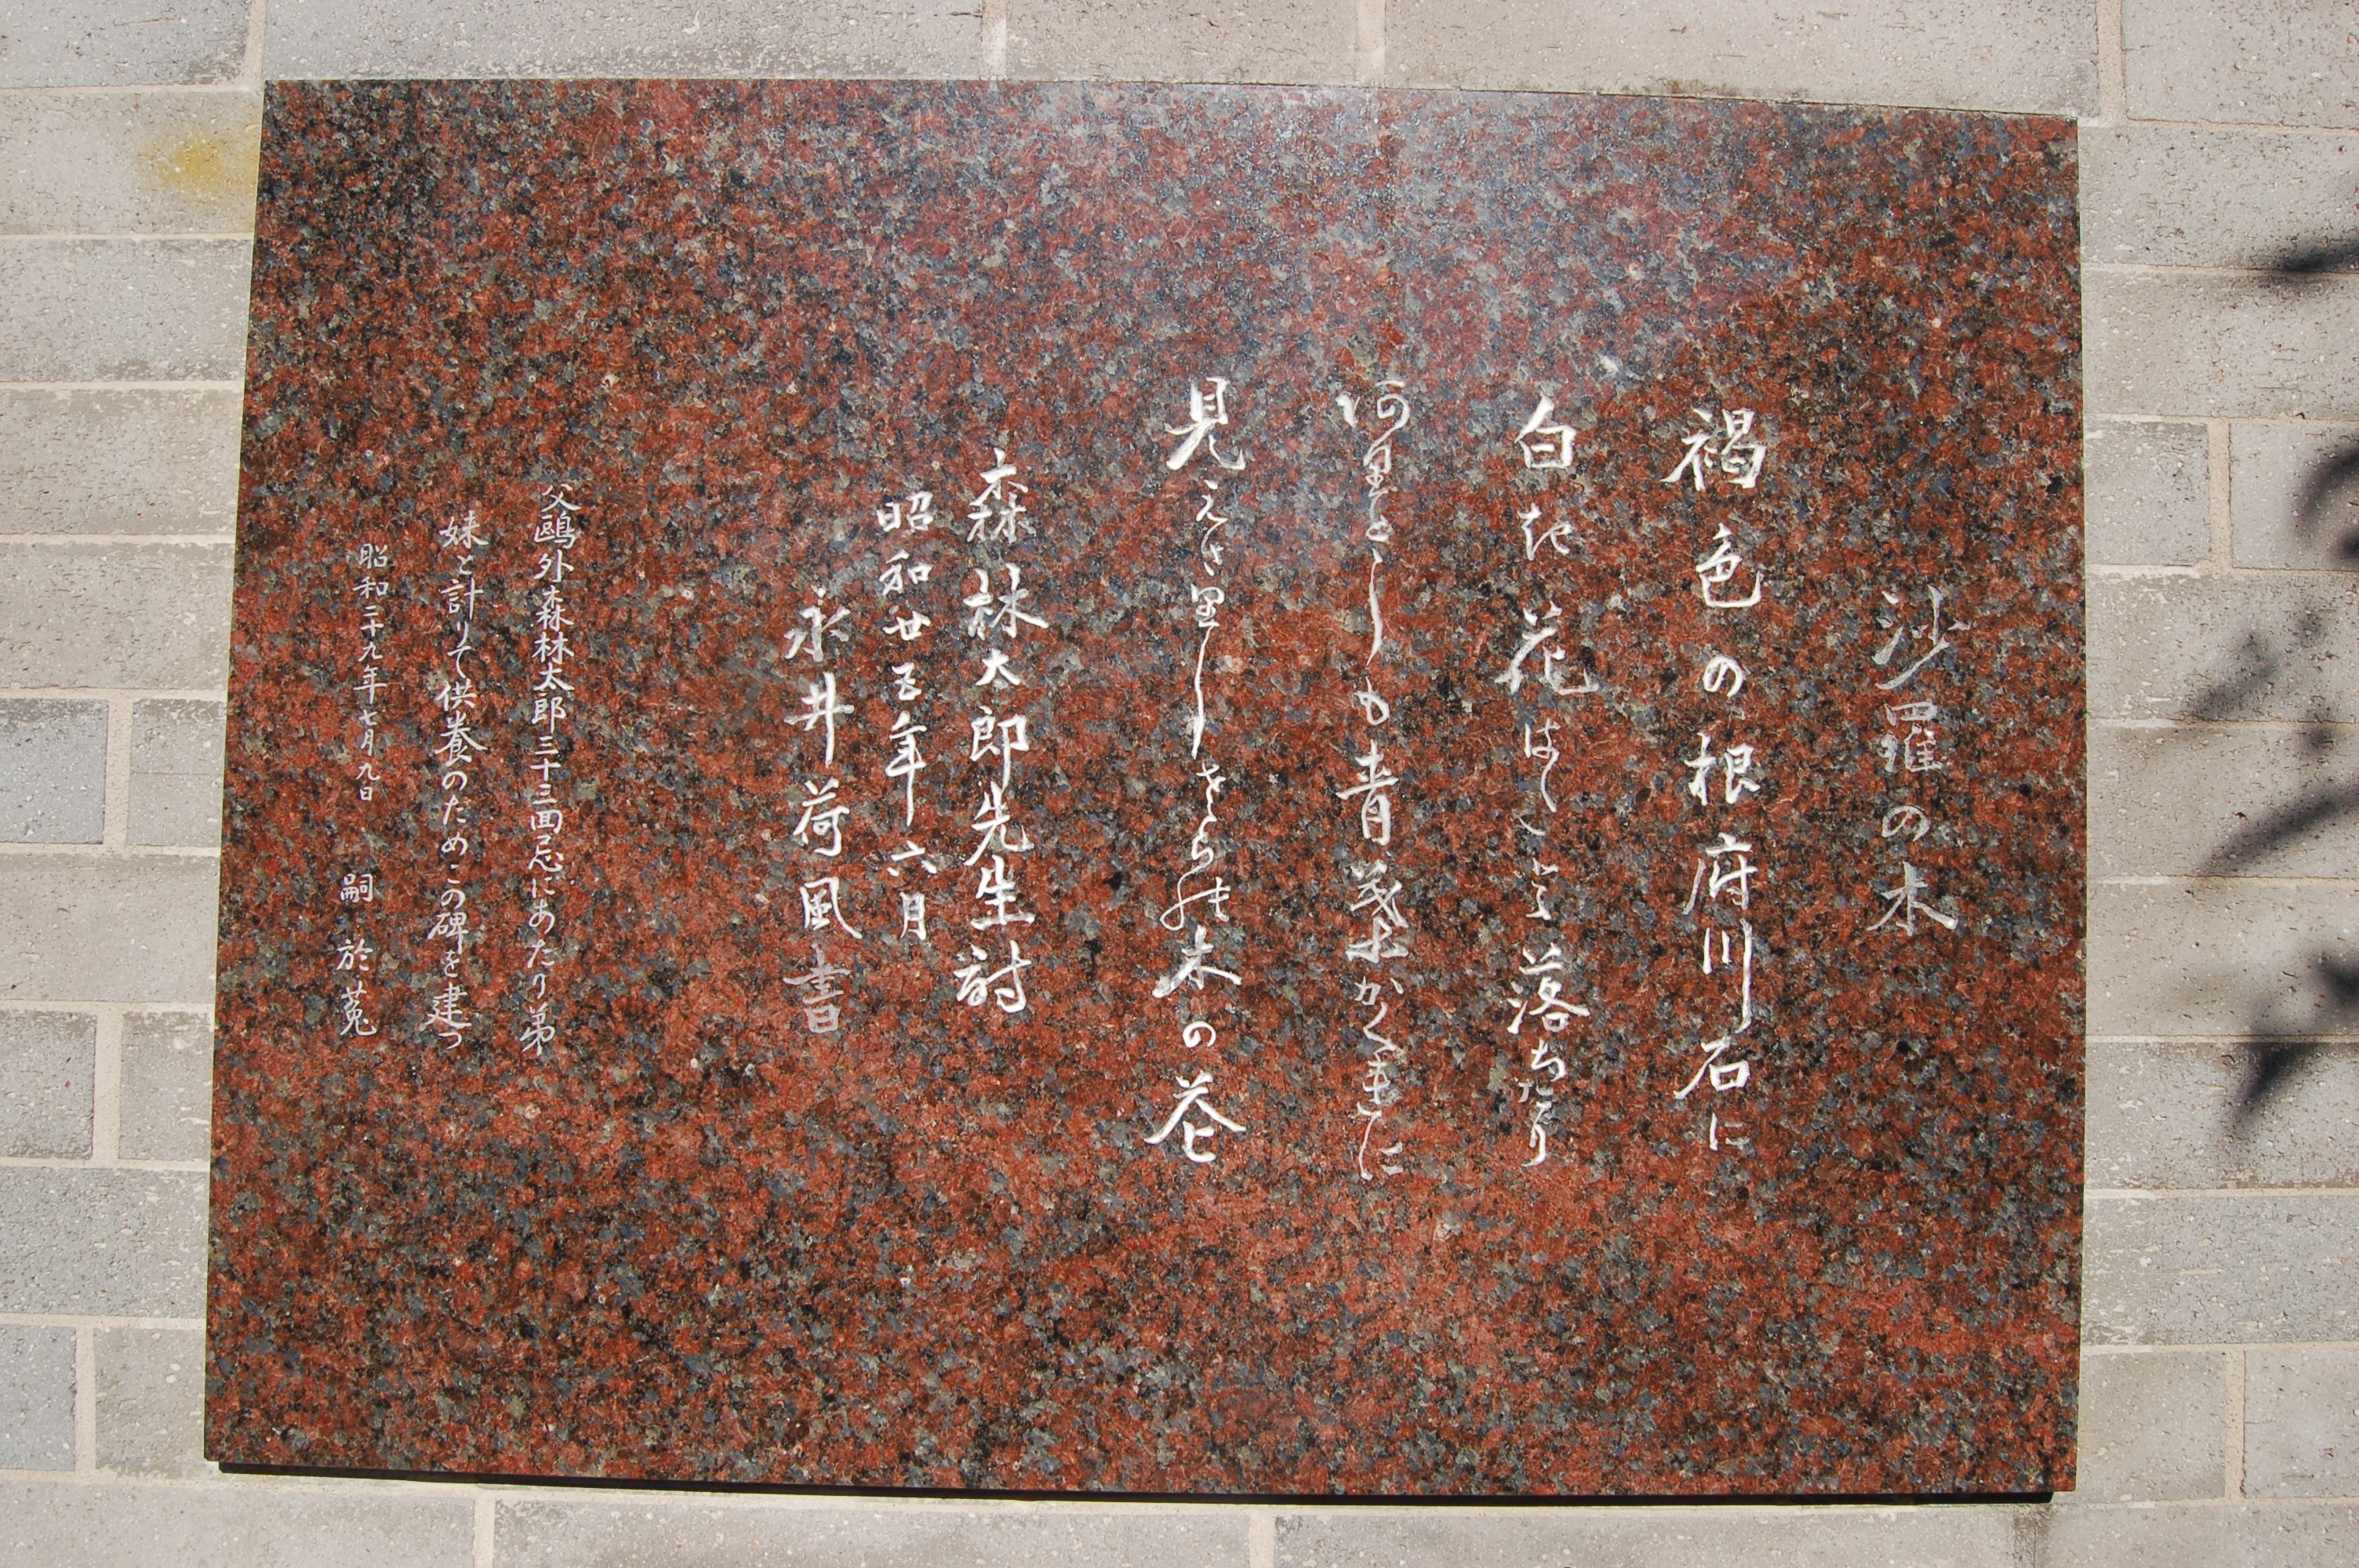 沙羅の木
褐色の根府川石に
白き花はたと落ちたり
ありとしも青葉かくれに
見えさりしさらの木の花
森林太郎先生詩
昭和廿五年六月
永井荷風書
父鷗外森林太郎三十三回忌にあたり弟
妹と計りて供養のためこの碑を建つ
昭和二十九年七月九日 嗣 於菟